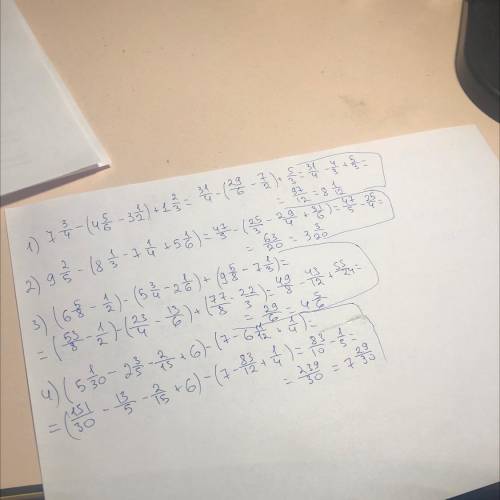 1) 7 3/4 - (4 5/6 - 3 1/2) + 1 2/3 = 31/4 - (29/6 - 7/2) + 5/3 = 31/4 - 4/3 + 5/3 =
= 97/12 = 8 1/12
2) 9 2/5 - (8 1/3 - 7 1/4 + 5 1/6) = 47/5 - (25/3 - 29/4 + 31/6) = 47/5 - 25/4 =
= 63/20 = 3 3/20
3) (6 5/8 - 1/2) - (5 3/4 - 2 1/6) + (9 5/8 - 7 1/3) =
= (53/8 - 1/2) - (23/4 - 13/6) + (77/8 - 22/3) = 49/8 - 43/12 + 55/24 =
= 29/6 = 4 5/6
4) (5 1/30 - 2 3/5 - 2/15 + 6) - (7 - 6 11/12 + 1/4) =
= (151/30 - 13/5 - 2/15 + 6) - (7 - 83/12 + 1/4) = 83/10 - 1/5 =
= 239/30 = 7 29/30